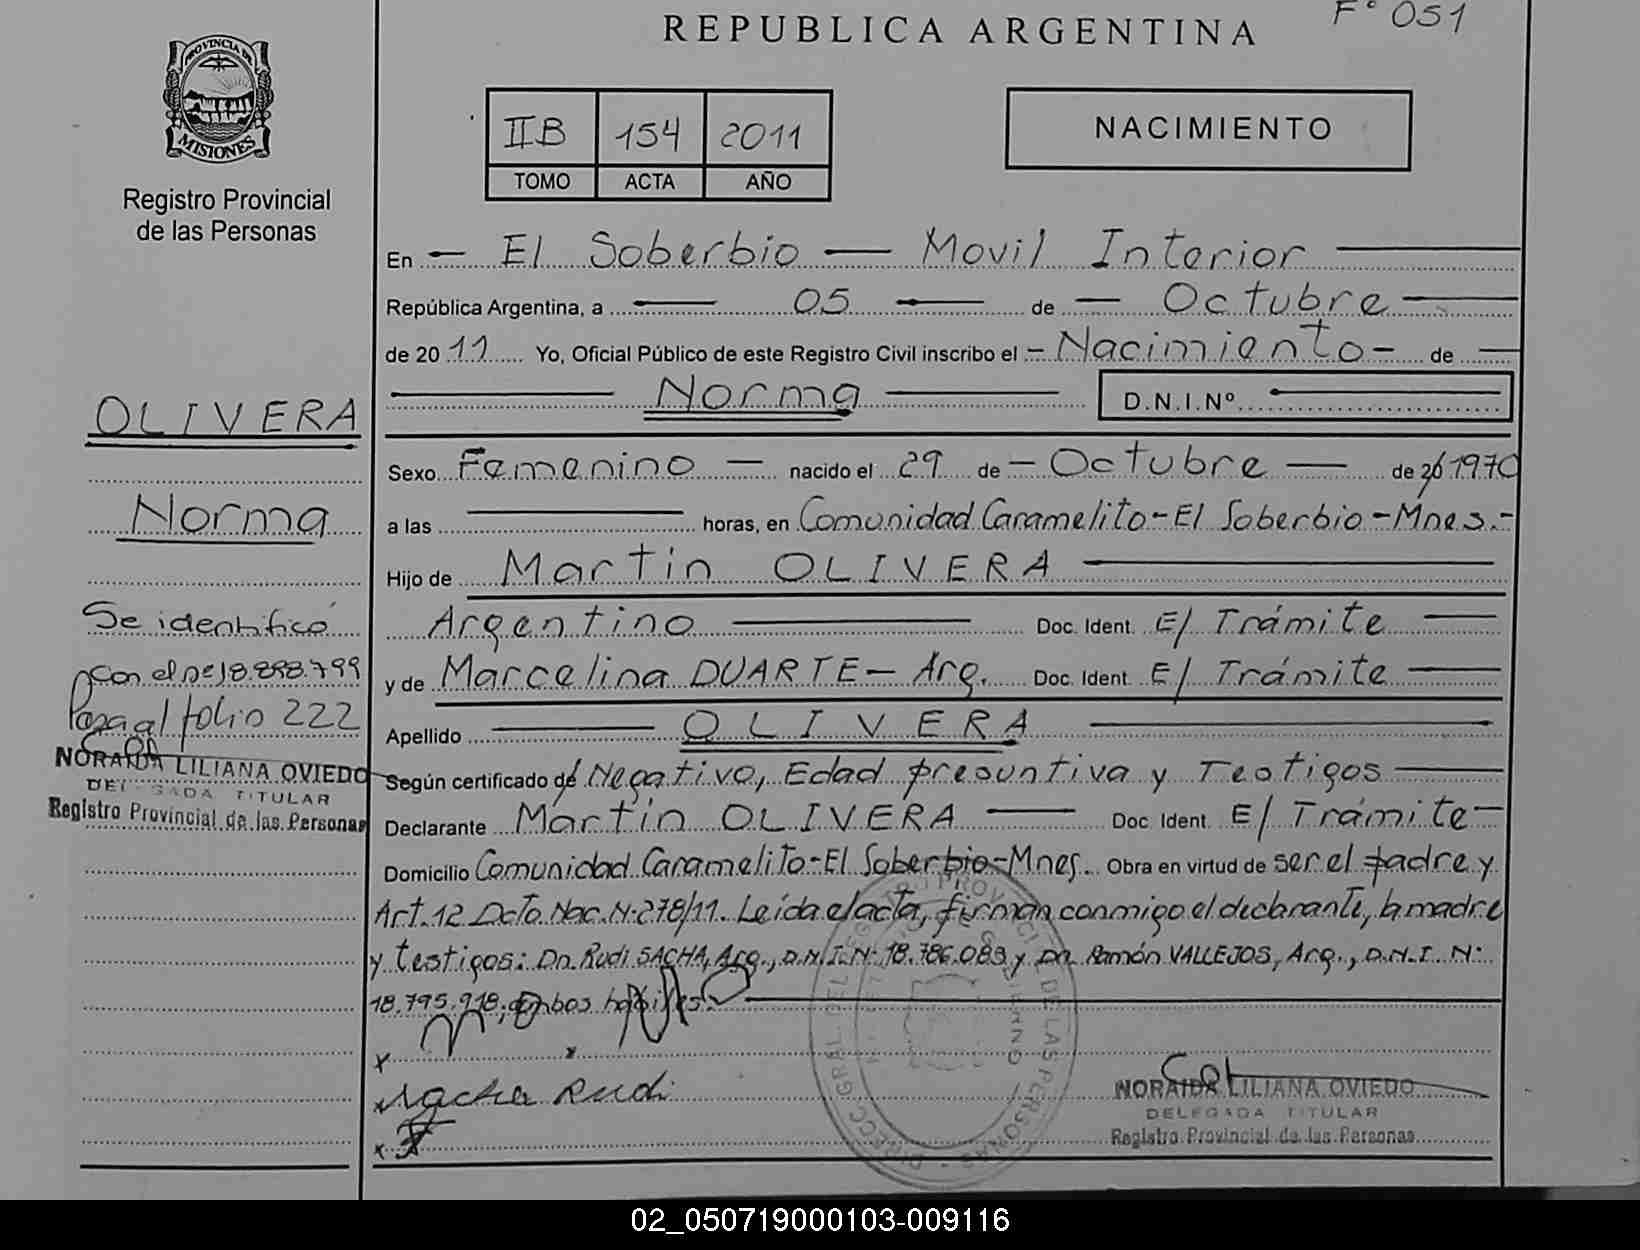 REPUBLICA ARGENTINA
Fº 051
PROVINCIA DE
MISIONES
Registro Provincial
de las Personas
IIB 154 2011
TOMO ACTA AÑO
NACIMIENTO
En — El Soberbio — Movil Interior —
República Argentina, a — 05 — de — Octubre —
de 2011 Yo, Oficial Público de este Registro Civil inscribo el - Nacimiento - de —
— Norma — D.N.I.Nº —
Sexo Femenino — nacido el 29 de — Octubre — de 20/ 1970
a las — horas, en Comunidad Caramelito-El Soberbio-Mnes.-
Hijo de Martin OLIVERA —
Argentino — Doc. Ident. E/ Trámite —
y de Marcelina DUARTE— Arg. Doc. Ident. E/ Trámite —
Apellido — OLIVERA —
Según certificado de/ Negativo, Edad presuntiva y Testigos —
Declarante Martin OLIVERA — Doc. Ident. E/ Trámite —
Domicilio Comunidad Caramelito-El Soberbio-Mnes. Obra en virtud de ser el padre y
Art. 12 Dcto. Nac. N: 278/11. Leída el acta, firman conmigo el declarante, la madre
y testigos: Dn. Rudi SACHA, Arg., D.N.I. N: 18.786.089 y Dn. Ramón VALLEJOS, Arg., D.N.I. N:
18.795.918, ambos habiles.
x
x
x Sacha Rudi
x
NORAIDA LILIANA OVIEDO
DELEGADA TITULAR
Registro Provincial de las Personas
OLIVERA
Norma
Se identificó
con el Nº 18.898.799
Pasa al folio 222
NORAIDA LILIANA OVIEDO
DELEGADA TITULAR
Registro Provincial de las Personas
02_050719000103-009116